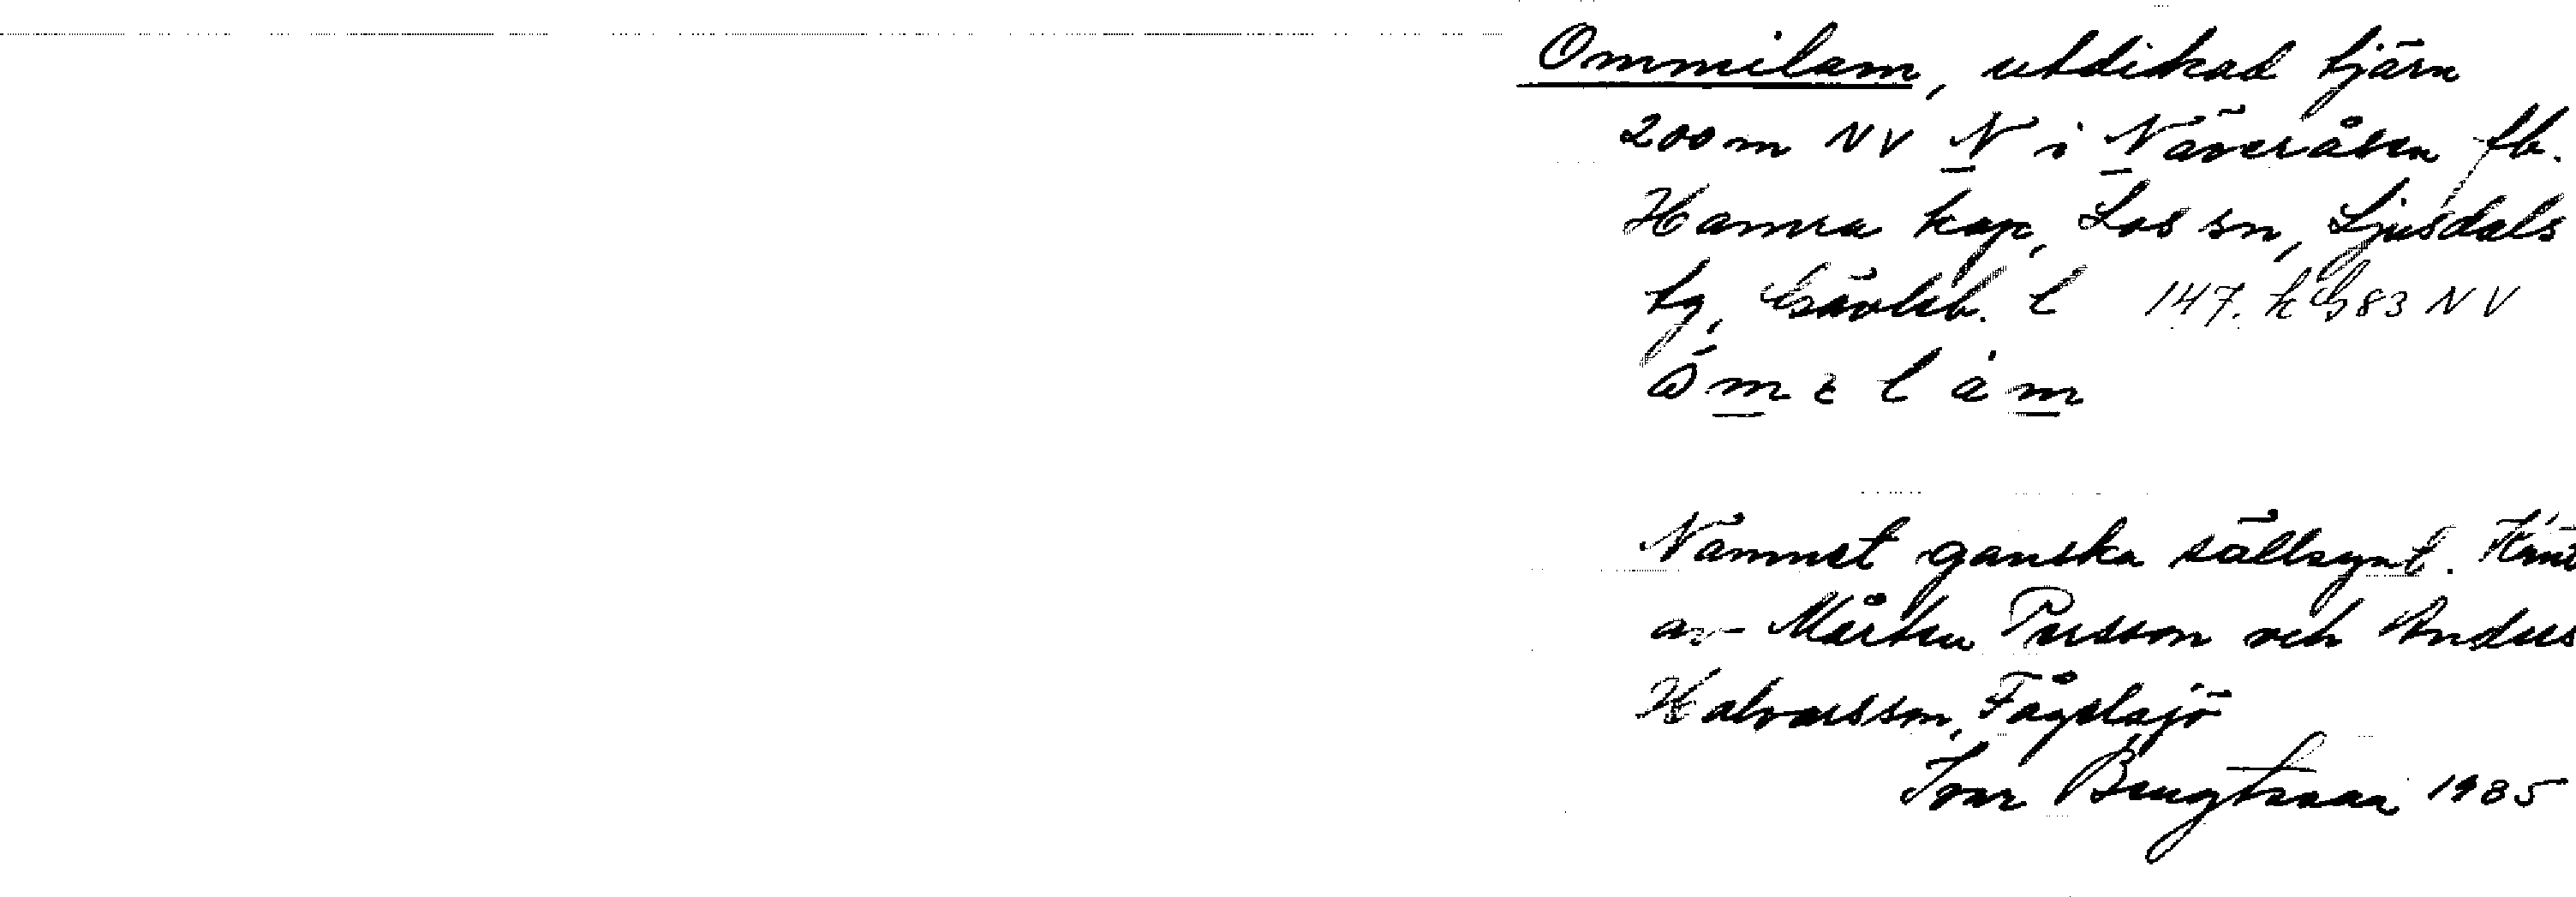 Ommilam, utdikad tjärn
200 m NV N i Näveråsen fb.
Hamra kap, Los sn, Ljusdals
tg, Gävleb. l 147. k G 83 NV
m l m
Namnet ganska sällsynt. Känt
av Mårten Persson och Anders
Halvarsson, Fågelsjö
Ivar Bengtsson 1935